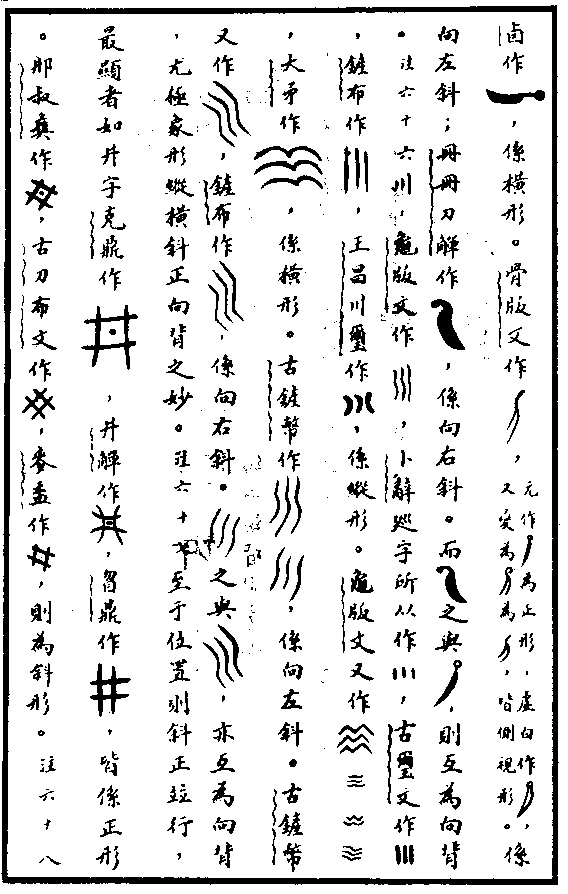 卣作，係橫形。骨版文作，元作為正形，虛白作，係又變為為，皆側視形。
向左斜；毌毌刀觶作，係向右斜。而之與，則互為向背
。注六十六川，龜版文作，卜辭巡字所从作，古璽文作
，鏟布作，王昌川璽作，係縱形。龜版文又作
，大矛作，係橫形。古鏟幣作，係向左斜。古鏟幣
又作，鏟布作，係向右斜。之與，亦互為向背
，尤極象形縱橫斜正向背之妙。注六十七至于位置則斜正竝行，
最顯者如井字克鼎作，井觶作，曶鼎作，皆係正形
。邢叔作，古刀布文作，麥盉作，則為斜形。注六十八